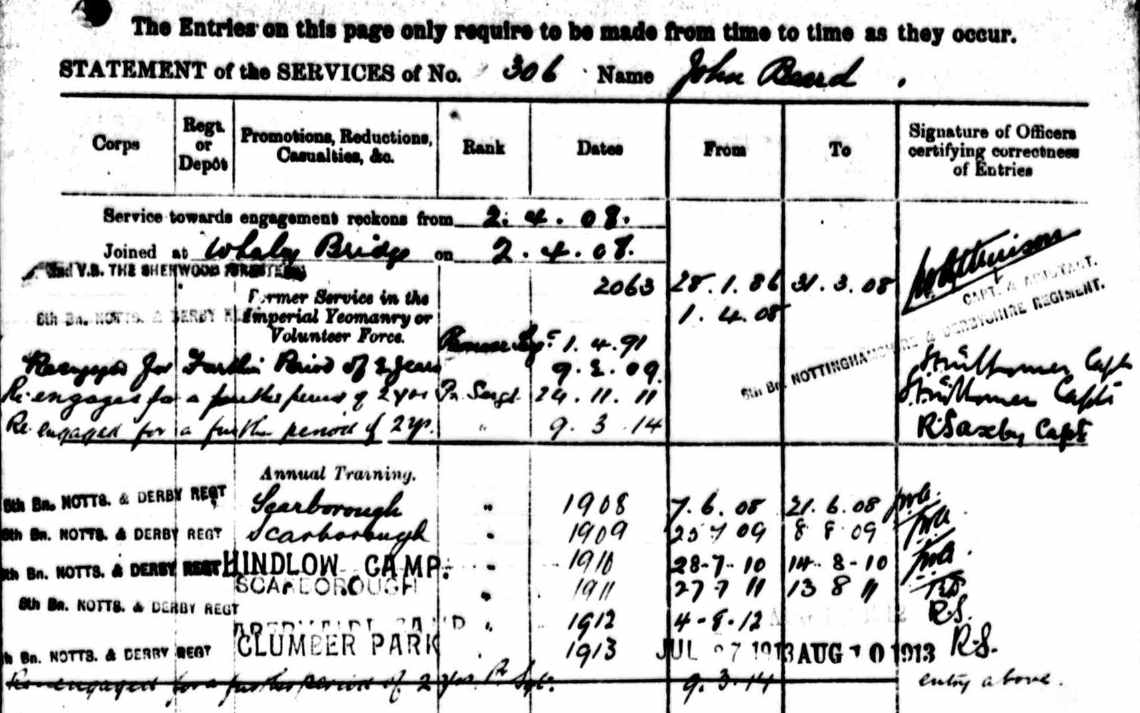 The Entries on this page only require to be made from time to time as they occur.
STATEMENT of the SERVICES of No. 306 Name John Beard
Corps Regt. or Depôt Promotions, Reductions, Casualties, &c. Rank Dates From To Signature of Officers certifying correctness of Entries
Service towards engagement reckons from 2. 4. 08.
Joined at Whaley Bridge on 2. 4. 08.
2nd V.B. THE SHERWOOD FORESTERS 2063 28. 1. 86 31. 3. 08
CAPT. & ADJUTANT.
6th Bn. NOTTINGHAMSHIRE & DERBYSHIRE REGIMENT.
6th Bn. NOTTS. & DERBY Former Service in the Imperial Yeomanry or Volunteer Force. 1. 4. 08
Pioneer Sgt. 1. 4. 91
Re-engaged for Further Period of 2 years 9. 3. 09. Capt
Re-engaged for a further period of 2 yrs Pr. Sergt 24. 11. 11 Capt
Re engaged for a further period of 2 yrs. " 9. 3. 14 R Saxby Capt
Annual Training.
6th Bn. NOTTS. & DERBY REGT Scarborough " 1908 7. 6. 08 21. 6. 08
6th Bn. NOTTS. & DERBY REGT Scarborough " 1909 25 7 09 8 8 09
6th Bn. NOTTS. & DERBY REGT HINDLOW CAMP. " 1910 28-7-10 14-8-10
SCARBOROUGH " 1911 27 7 11 13 8 11 R.S.
6th Bn. NOTTS. & DERBY REGT " 1912 4-8-12 R.S.
6th Bn. NOTTS. & DERBY REGT CLUMBER PARK 1913 JUL 27 1913 AUG 10 1913 R.S.
Re-engaged for a further period of 2 yrs. Pr Sgt. 9. 3. 14 entry above.